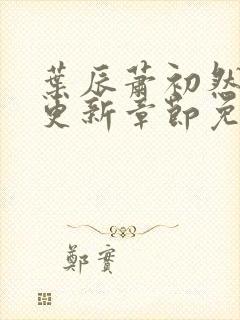 葉辰蕭初然
更新章節免
鄭實